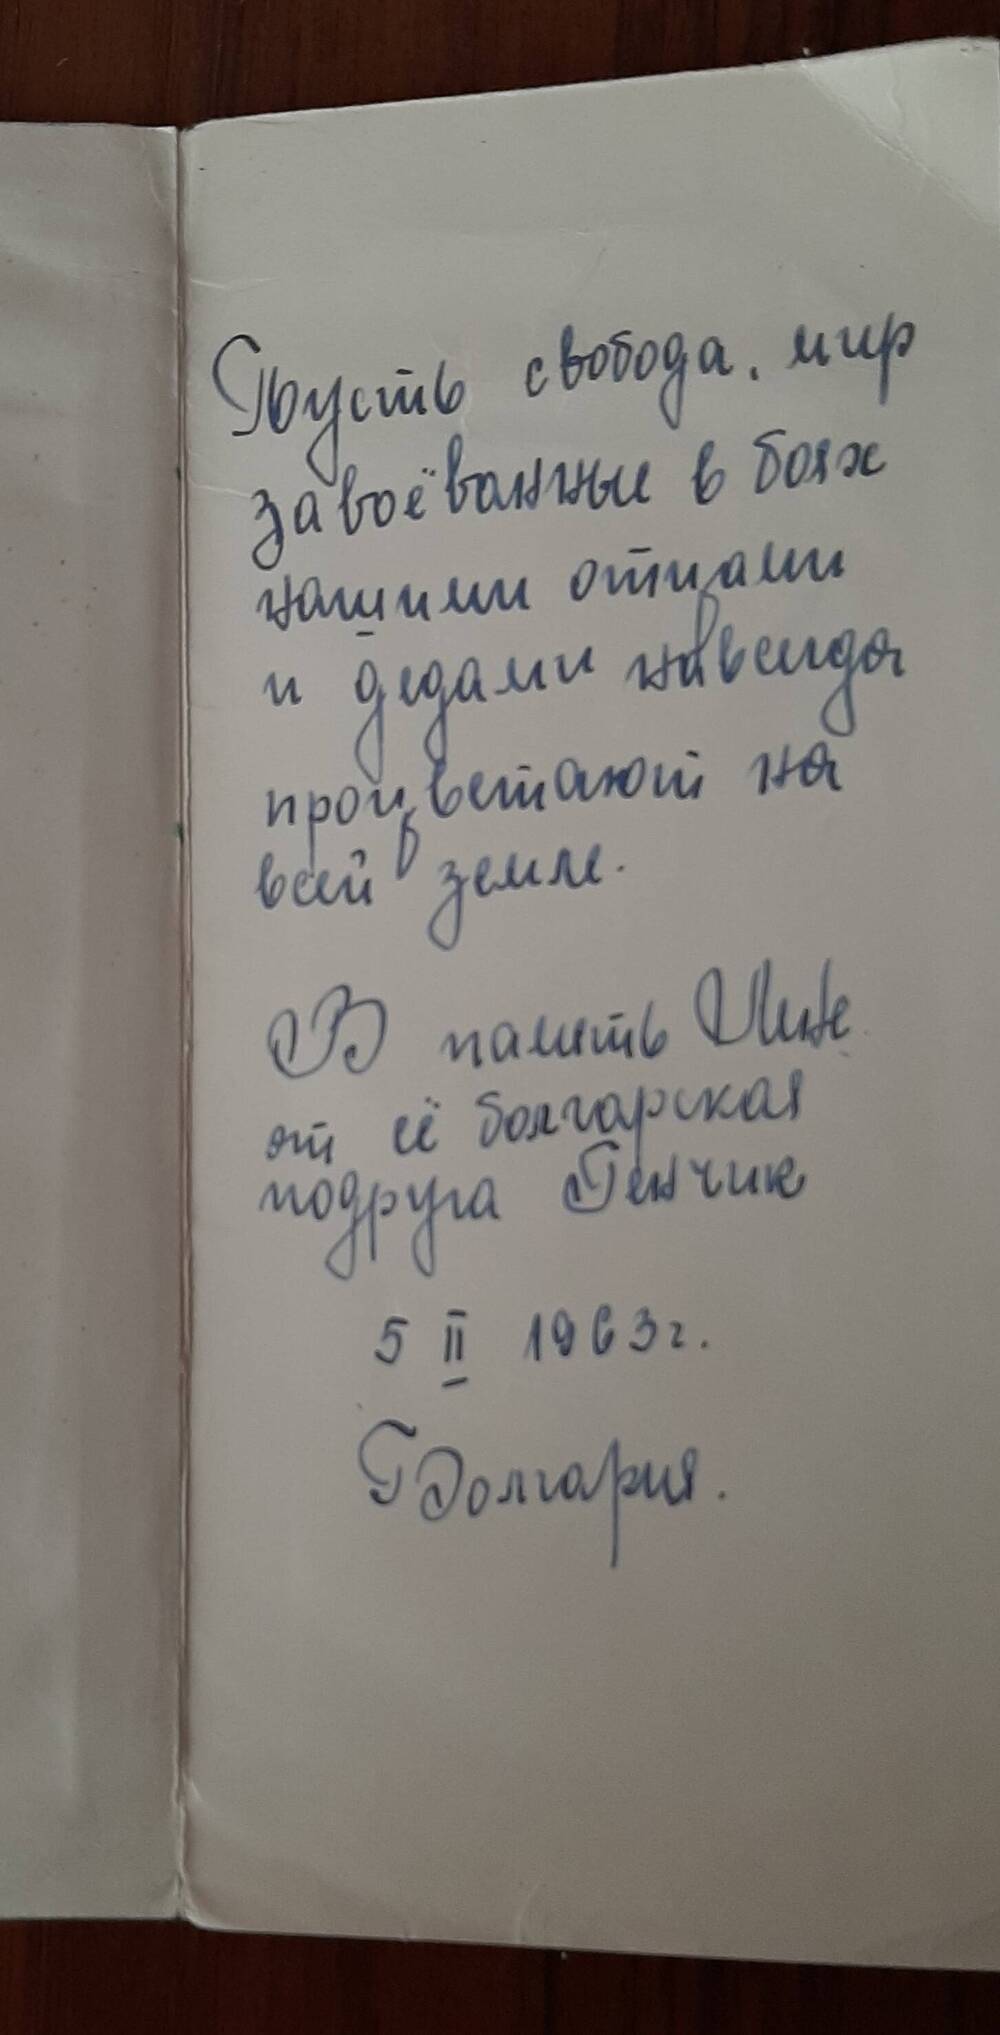 Пусть свобода, мир
завоёванные в боях
нашими отцами
и дедами навсегда
процветают на
всей земле.
В память Инне
от её болгарская
подруга Генчик
5 II 1963 г.
Болгария.